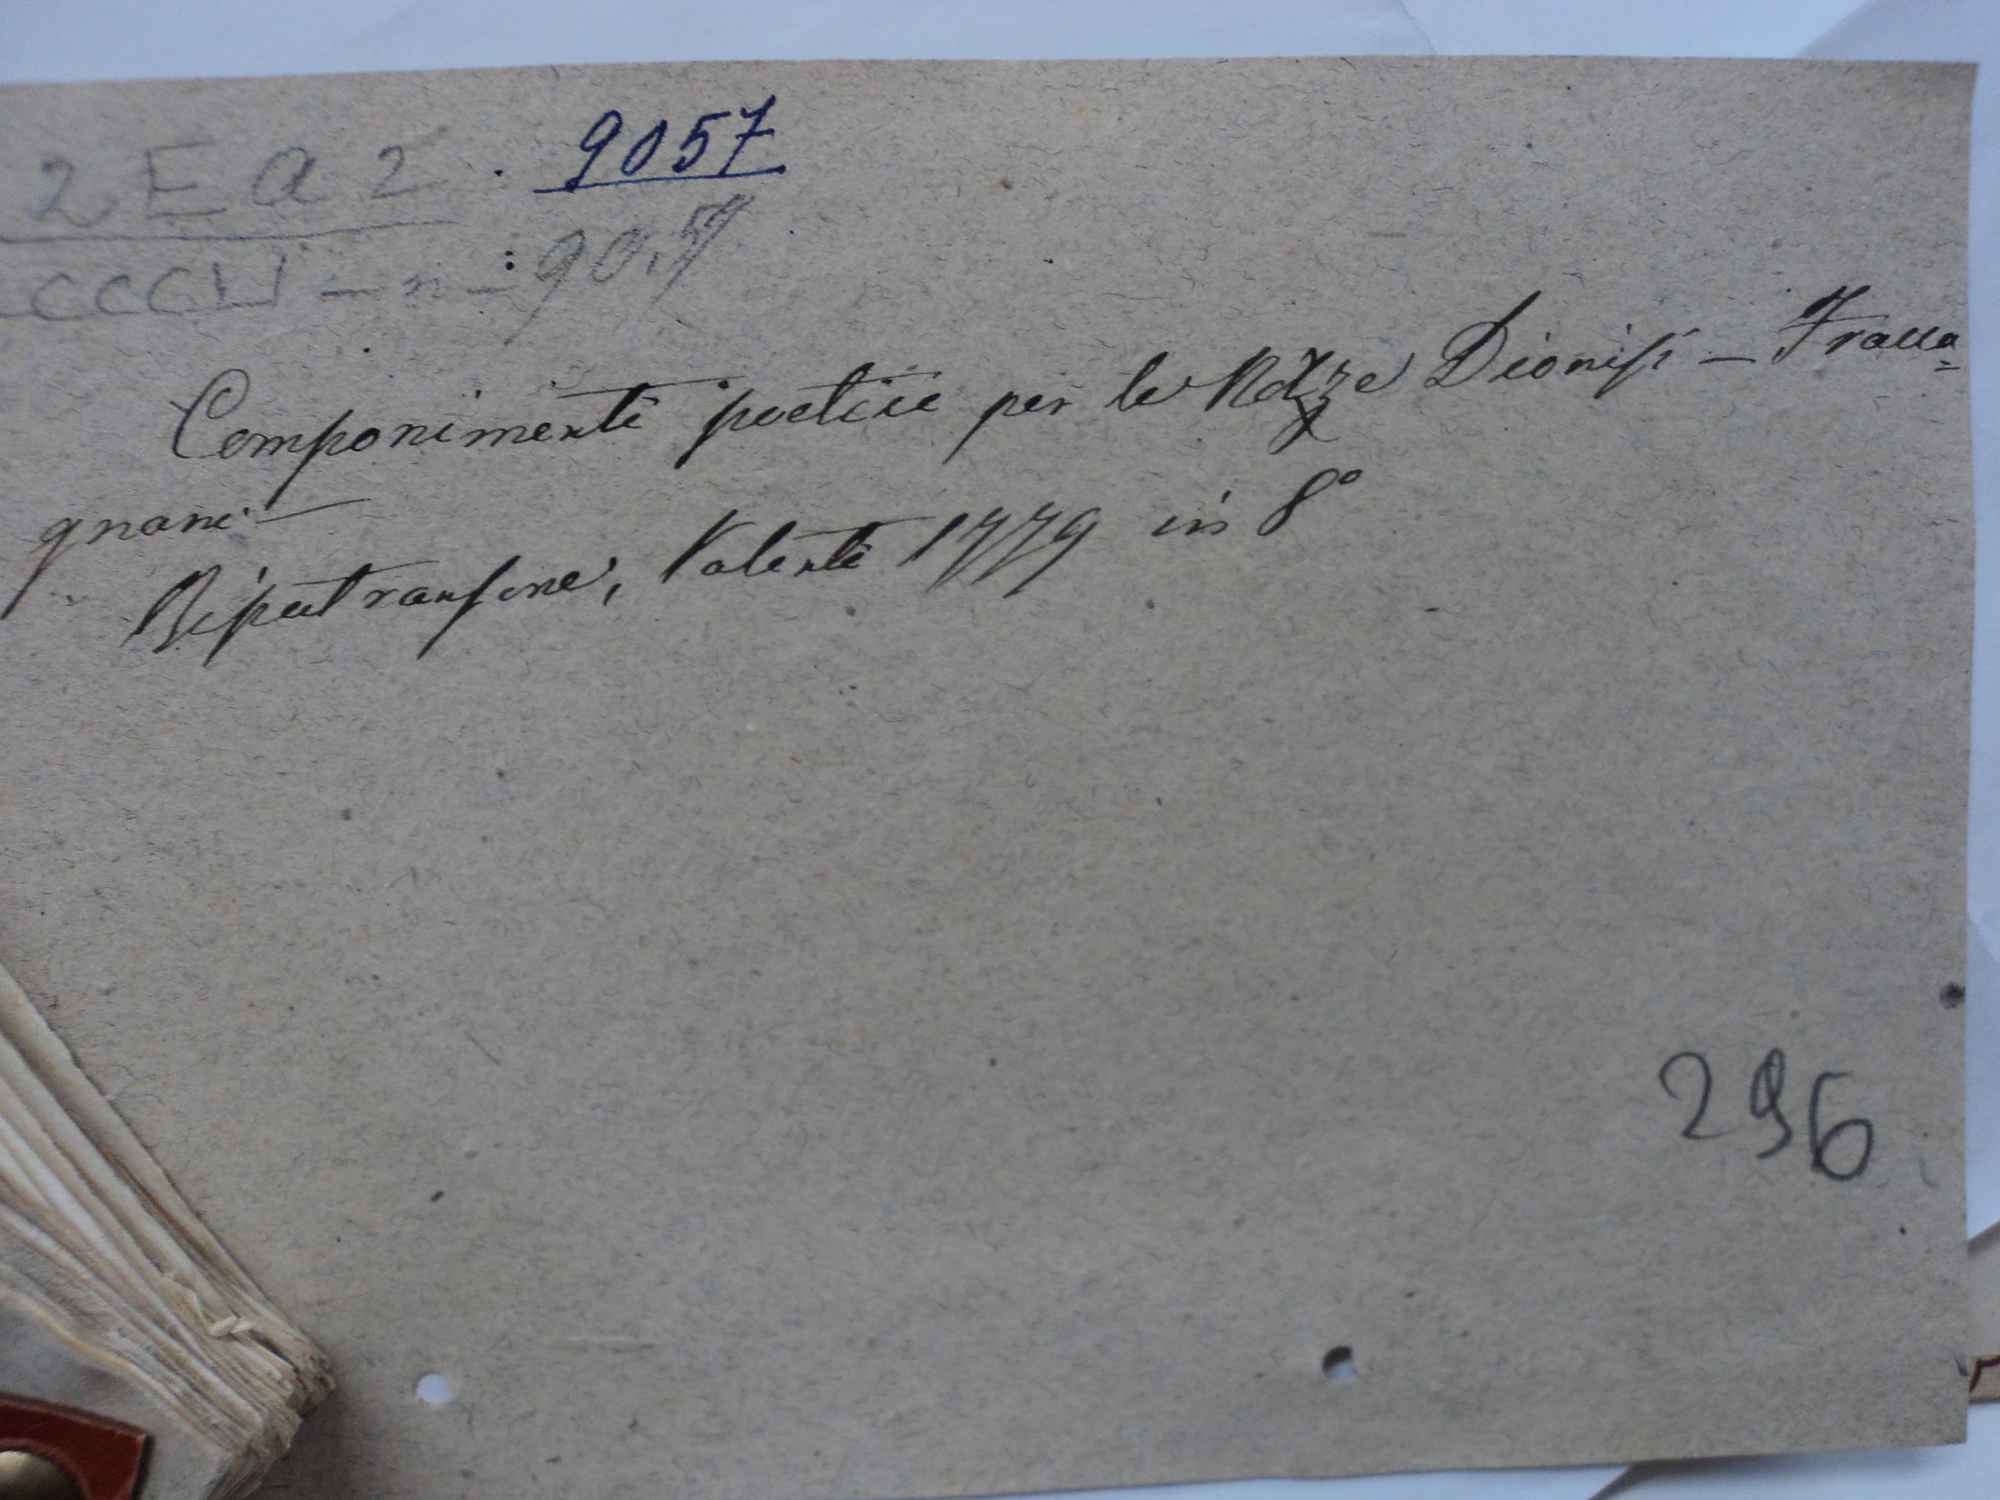 2 E a 2 . 9057
CCCLV - n - 9057
Componimenti poetici per le Nozze Dionisi - Fracca=
gnani -
Ripatransone, Valenti 1779 in 8°
296